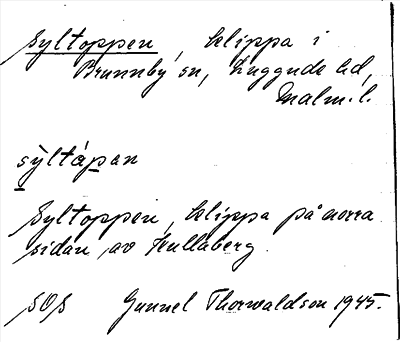 Syltoppen, klippa i
Brunnby sn, Luggude hd,
Malm. l.
sỳltápan
Syltoppen, klippa på norra
sidan av Kullaberg.
SOS Gunnel Thorwaldson 1945.